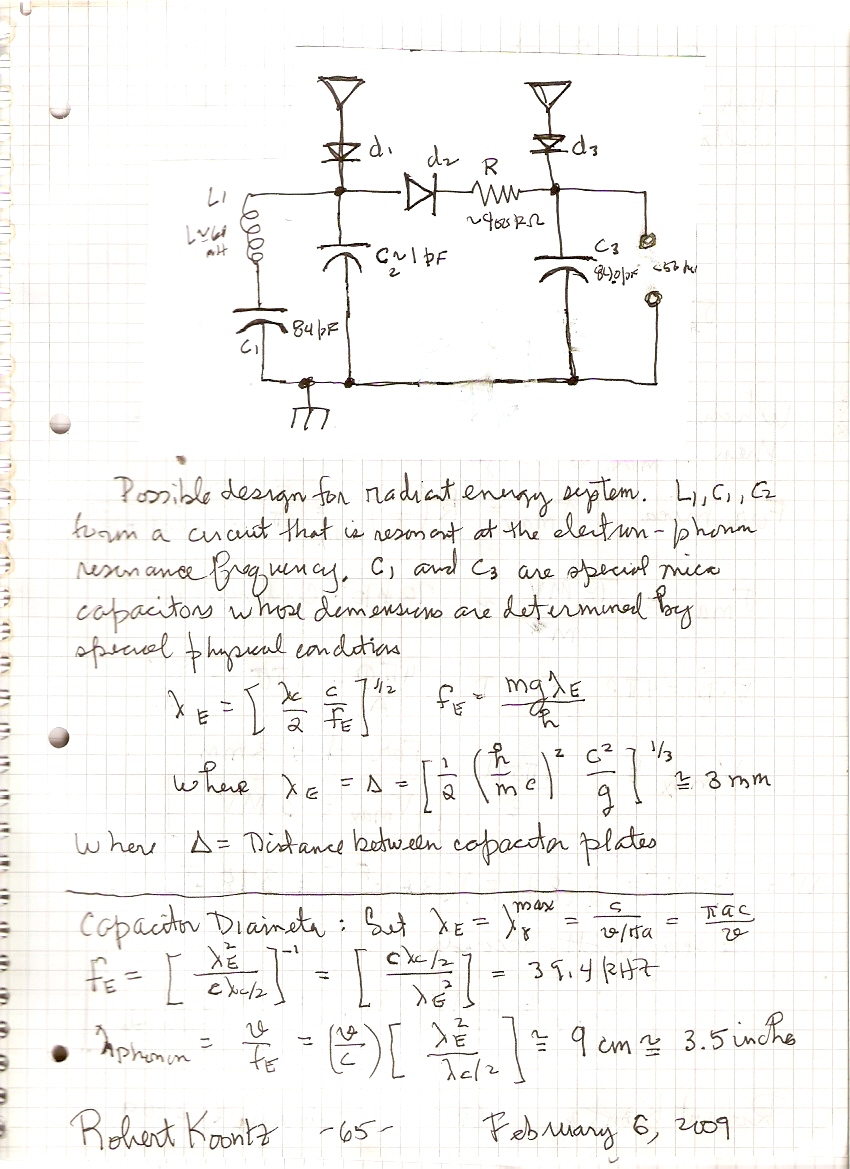 d1
d2
R
d3
L1
C2 ~1pF
C3
84pF
C1
Possible design for radiant energy system. L1, C1, C2
form a circuit that is resonant at the electron-phonon
resonance frequency. C1 and C3 are special mica
capacitors whose dimensions are determined by
special physical conditions
λE = [ λc/2 c/fE ]^1/2 fE = mgλE/ħ
where λE = Δ = [ 1/2 (ħ/mc)^2 c^2/g ]^1/3 ≅ 3 mm
where Δ = Distance between capacitor plates
Capacitor Diameter: Set λE = λγ^max = c/v/πa = πac/v
fE = [ λE^2/cλc/2 ]^-1 = [ cλc/2/λE^2 ] = 39.4 kHZ
λphonon = v/fE = (v/c) [ λE^2/λc/2 ] ≅ 9 cm ≅ 3.5 inches
Robert Koontz -65- February 6, 2009